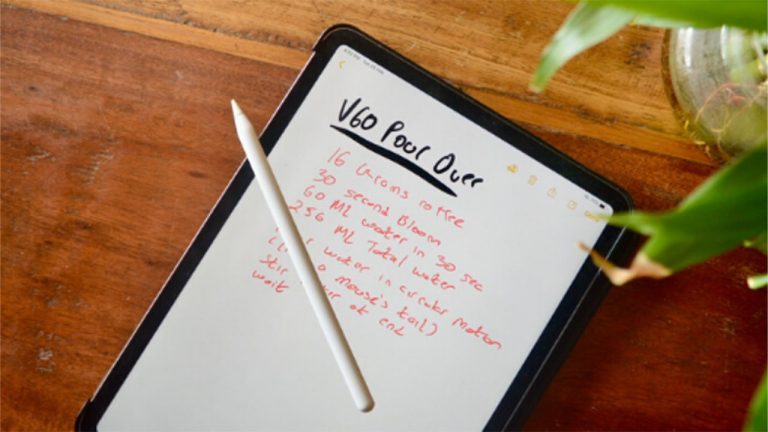 V60 Pour Over
16 Grams coffee
30 second Bloom
60 ML water in 30 sec
256 ML Total water
water in circular motion
a mouse's tail)
Stir at end
wait